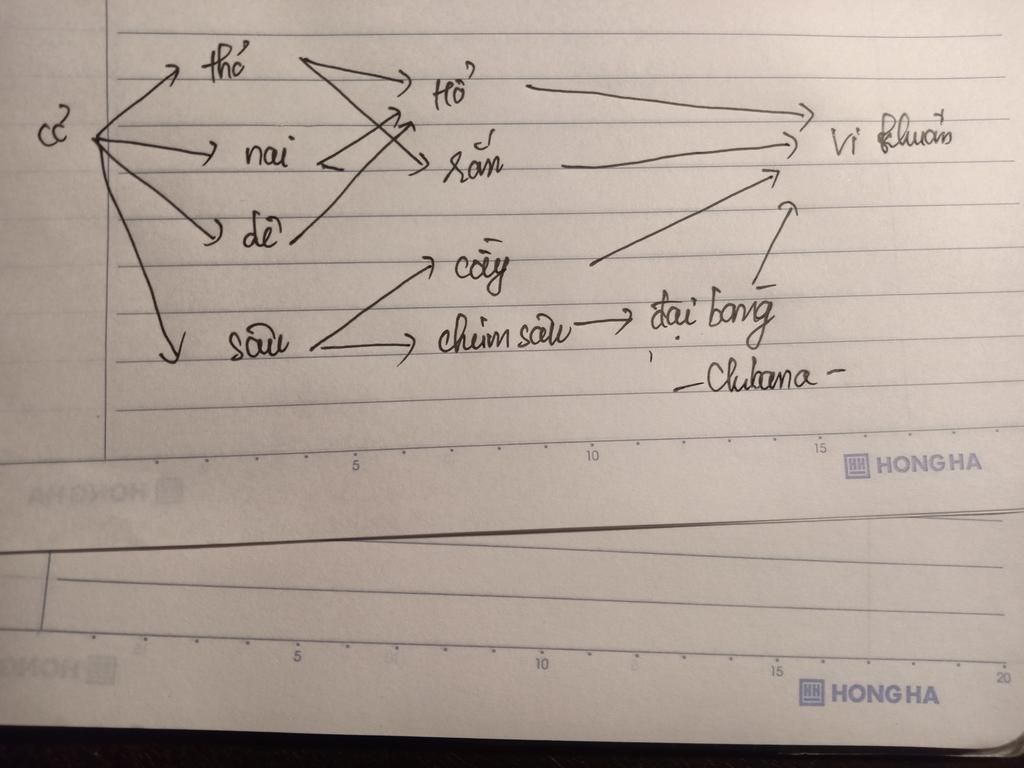 thỏ
Hổ
cỏ
nai
rắn
vi khuẩn
dê
cầy
sâu
chim sâu
đại bàng
- Clubana -
5
10
15
HONG HA
5
10
15
20
HONG HA